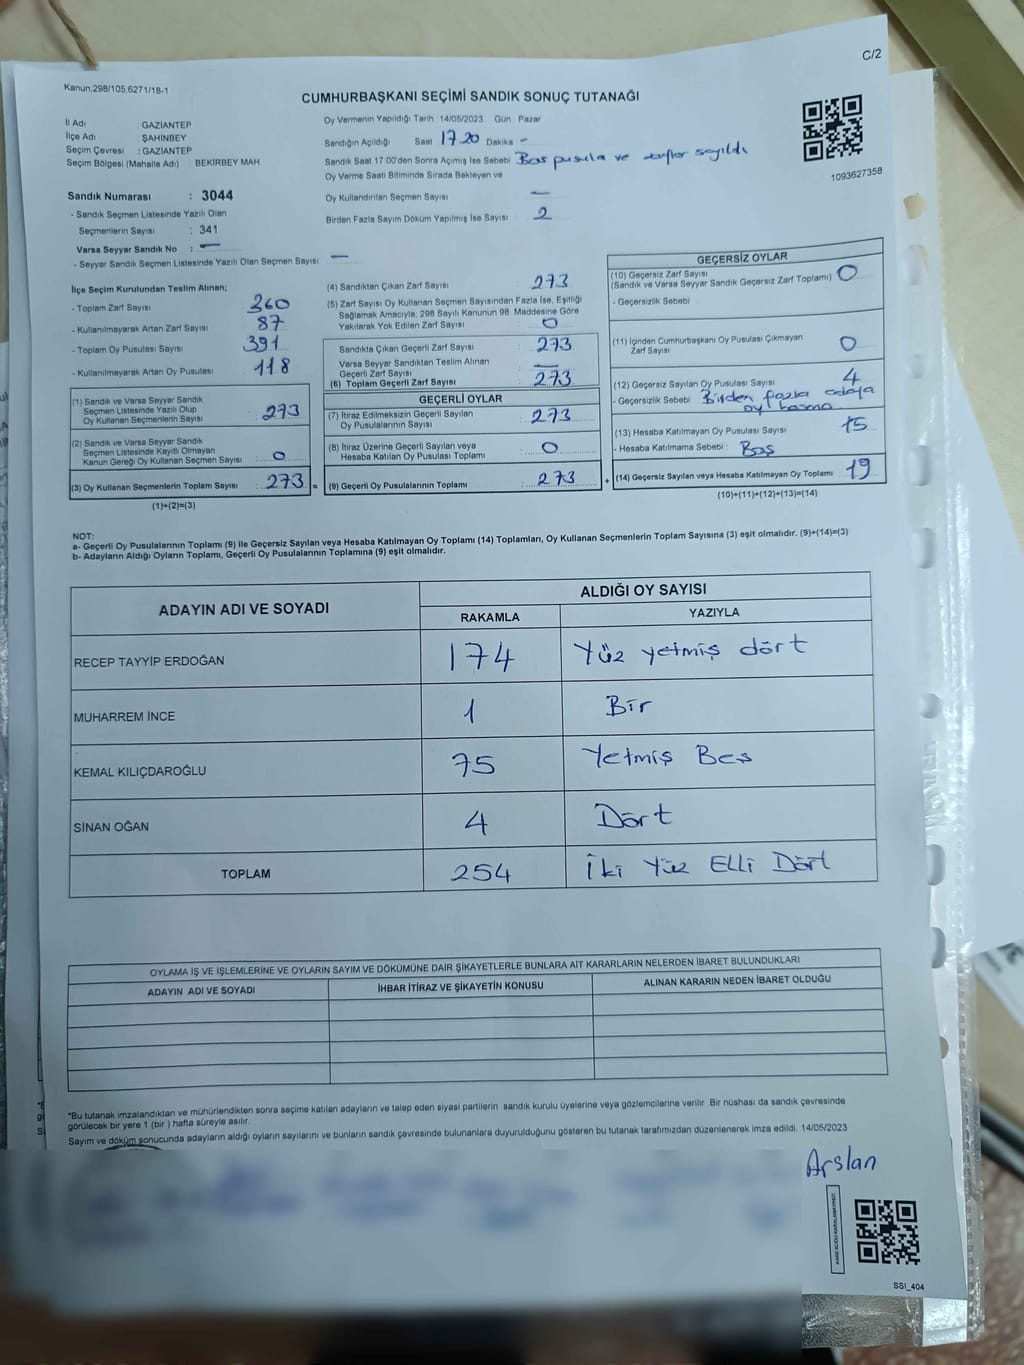 C/2
Kanun.298/105.6271/18-1
CUMHURBAŞKANI SEÇİMİ SANDIK SONUÇ TUTANAĞI
İl Adı GAZİANTEP
İlçe Adı ŞAHİNBEY
Seçim Çevresi : GAZİANTEP
Seçim Bölgesi (Mahalle Adı) : BEKİRBEY MAH.
Oy Vermenin Yapıldığı Tarih : 14/05/2023 Gün : Pazar
Sandığın Açıldığı Saat 17.20 Dakika -
Sandık Saat 17:00'den Sonra Açımış İse Sebebi Boş pusula ve zarflar sayıldı
Oy Verme Saati Bitiminde Sırada Bekleyen ve
Oy Kullandırılan Seçmen Sayısı —
Birden Fazla Sayım Döküm Yapılmış İse Sayısı 2
1093627358
Sandık Numarası : 3044
- Sandık Seçmen Listesinde Yazılı Olan
Seçmenlerin Sayısı : 341
Varsa Seyyar Sandık No : —
- Seyyar Sandık Seçmen Listesinde Yazılı Olan Seçmen Sayısı : —
İlçe Seçim Kurulundan Teslim Alınan;
- Toplam Zarf Sayısı 360
- Kullanılmayarak Artan Zarf Sayısı 87
- Toplam Oy Pusulası Sayısı 391
- Kullanılmayarak Artan Oy Pusulası 118
(1) Sandık ve Varsa Seyyar Sandık
Seçmen Listesinde Yazılı Olup
Oy Kullanan Seçmenlerin Sayısı : 273
(2) Sandık ve Varsa Seyyar Sandık
Seçmen Listesinde Kayıtlı Olmayan
Kanun Gereği Oy Kullanan Seçmen Sayısı : 0
(3) Oy Kullanan Seçmenlerin Toplam Sayısı : 273 =
(1)+(2)=(3)
(4) Sandıktan Çıkan Zarf Sayısı 273
(5) Zarf Sayısı Oy Kullanan Seçmen Sayısından Fazla İse, Eşitliği
Sağlamak Amacıyla; 298 Sayılı Kanunun 98. Maddesine Göre
Yakılarak Yok Edilen Zarf Sayısı : 0
Sandıkta Çıkan Geçerli Zarf Sayısı : 273
Varsa Seyyar Sandıktan Teslim Alınan
Geçerli Zarf Sayısı —
(6) Toplam Geçerli Zarf Sayısı : 273
GEÇERLİ OYLAR
(7) İtiraz Edilmeksizin Geçerli Sayılan
Oy Pusulalarının Toplamı : 273
(8) İtiraz Üzerine Geçerli Sayılan veya
Hesaba Katılan Oy Pusulası Toplamı : 0
(9) Geçerli Oy Pusulalarının Toplamı : 273 +
GEÇERSİZ OYLAR
(10) Geçersiz Zarf Sayısı
(Sandık ve Varsa Seyyar Sandık Geçersiz Zarf Toplamı) : 0
- Geçersizlik Sebebi
(11) İçinden Cumhurbaşkanı Oy Pusulası Çıkmayan
Zarf Sayısı 0
(12) Geçersiz Sayılan Oy Pusulası Sayısı 4
- Geçersizlik Sebebi : Birden fazla adaya
oy basma
(13) Hesaba Katılmayan Oy Pusulası Sayısı 15
- Hesaba Katılmama Sebebi : Boş
(14) Geçersiz Sayılan veya Hesaba Katılmayan Oy Toplamı : 19
(10)+(11)+(12)+(13)=(14)
NOT:
a- Geçerli Oy Pusulalarının Toplamı (9) ile Geçersiz Sayılan veya Hesaba Katılmayan Oy Toplamı (14) Toplamları, Oy Kullanan Seçmenlerin Toplam Sayısına (3) eşit olmalıdır. (9)+(14)=(3)
b- Adayların Aldığı Oyların Toplamı, Geçerli Oy Pusulalarının Toplamına (9) eşit olmalıdır.
ADAYIN ADI VE SOYADI ALDIĞI OY SAYISI
RAKAMLA YAZIYLA
RECEP TAYYİP ERDOĞAN 174 Yüz yetmiş dört
MUHARREM İNCE 1 Bir
KEMAL KILIÇDAROĞLU 75 Yetmiş Beş
SİNAN OĞAN 4 Dört
TOPLAM 254 İki Yüz Elli Dört
OYLAMA İŞ VE İŞLEMLERİNE VE OYLARIN SAYIM VE DÖKÜMÜNE DAİR ŞİKAYETLERLE BUNLARA AİT KARARLARIN NELERDEN İBARET BULUNDUKLARI
ADAYIN ADI VE SOYADI İHBAR İTİRAZ VE ŞİKAYETİN KONUSU ALINAN KARARIN NEDEN İBARET OLDUĞU
*Bu tutanak imzalandıktan ve mühürlendikten sonra seçime katılan adayların ve talep eden siyasi partilerin sandık kurulu üyelerine veya gözlemcilerine verilir. Bir nüshası da sandık çevresinde
görülecek bir yere 1 (bir ) hafta süreyle asılır.
Sayım ve döküm sonucunda adayların aldığı oyların sayılarını ve bunların sandık çevresinde bulunanlara duyurulduğunu gösteren bu tutanak tarafımızdan düzenlenerek imza edildi. 14/05/2023
Arslan
SSI_404